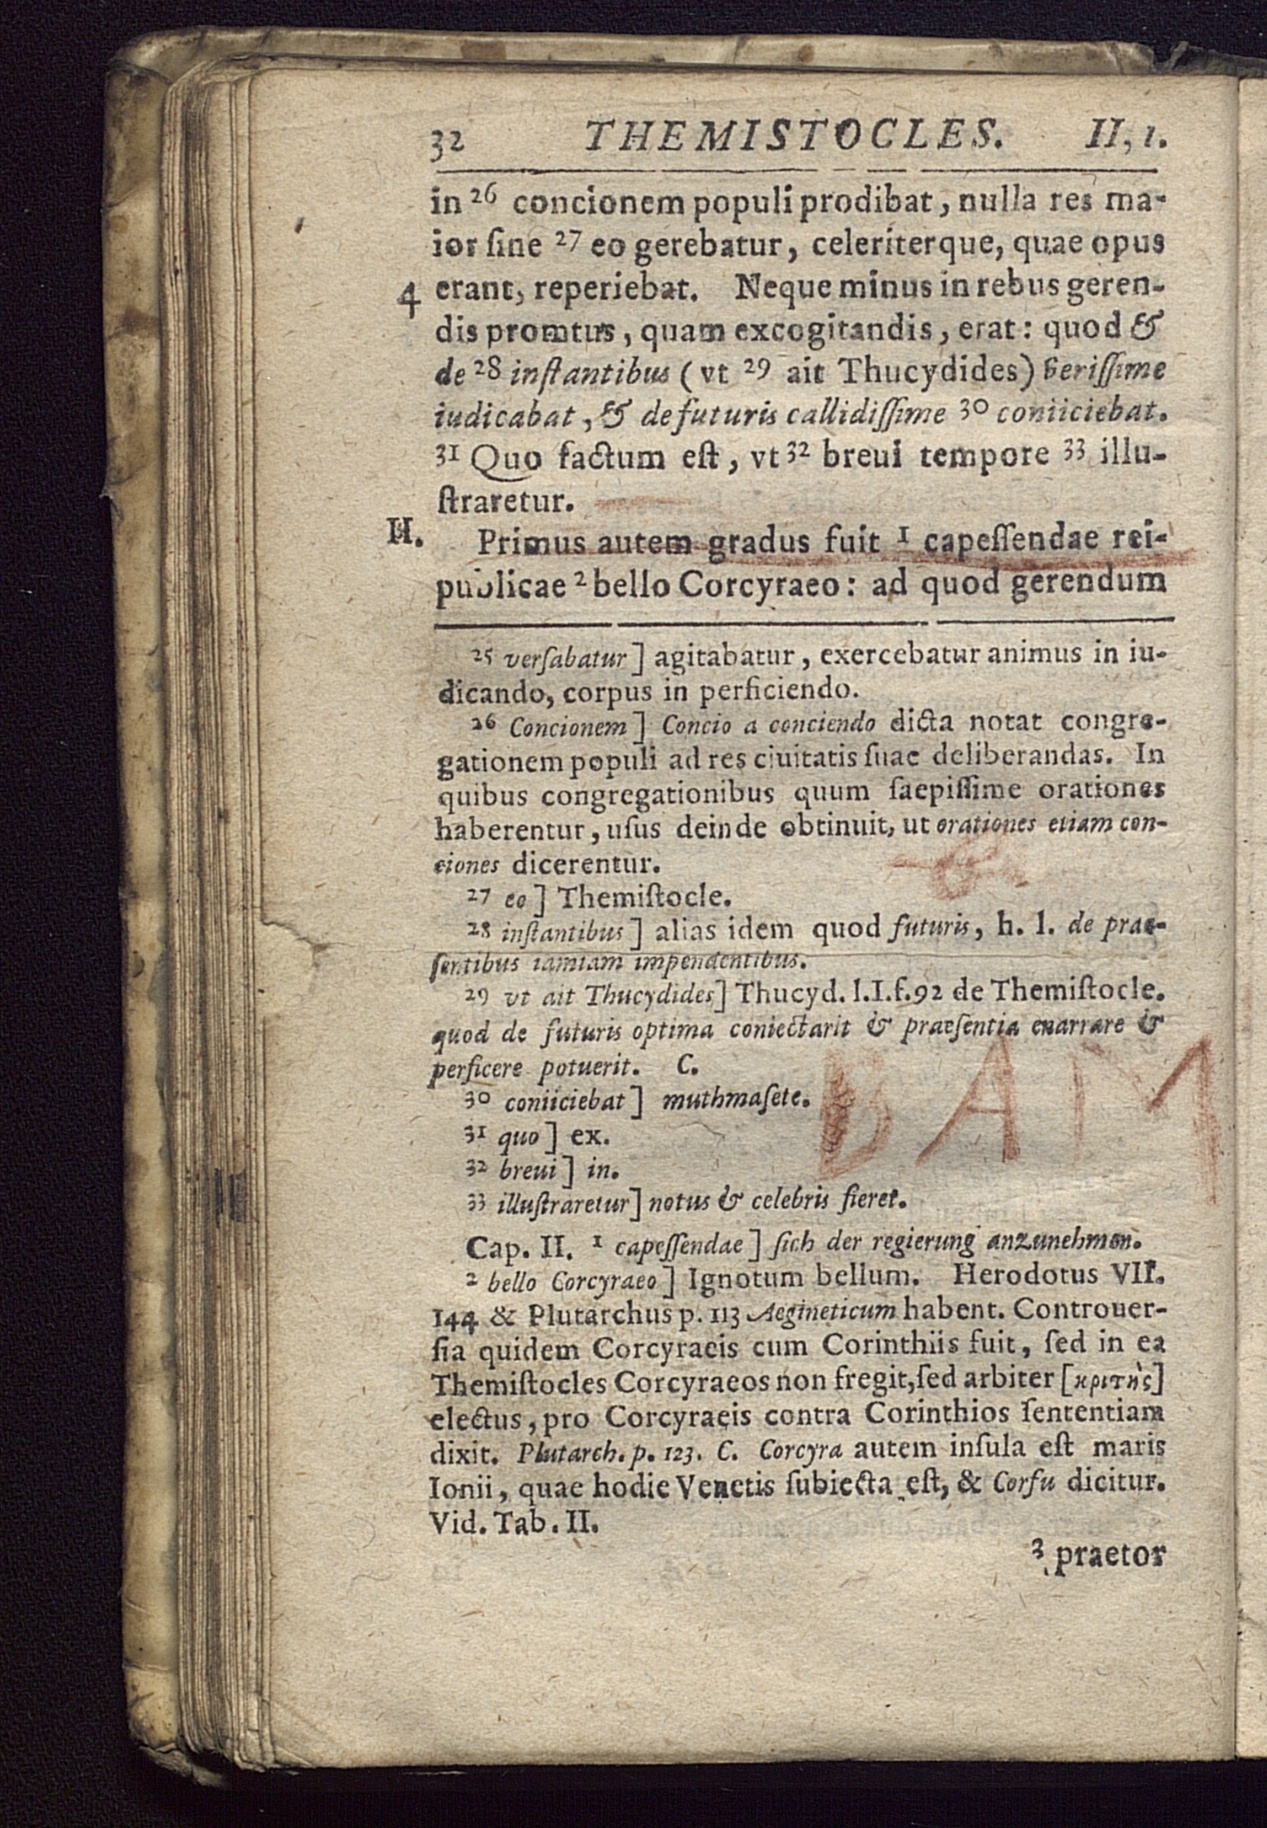 32 THEMISTOCLES. II, 1.
in ²⁶ concionem populi prodibat, nulla res ma-
ior ſine ²⁷ eo gerebatur, celeriterque, quae opus
4 erant, reperiebat. Neque minus in rebus geren-
dis promtus, quam excogitandis, erat: quod &
de ²⁸ inſtantibus (vt ²⁹ ait Thucydides) veriſſime
iudicabat, & de futuris callidiſſime ³⁰ coniiciebat.
³¹ Quo factum eſt, vt ³² breui tempore ³³ illu-
ſtraretur.
II. Primus autem gradus fuit ¹ capeſſendae rei-
publicae ² bello Corcyraeo: ad quod gerendum
²⁵ verſabatur] agitabatur, exercebatur animus in iu-
dicando, corpus in perficiendo.
²⁶ Concionem] Concio a conciendo dicta notat congre-
gationem populi ad res ciuitatis ſuae deliberandas. In
quibus congregationibus quum ſaepiſſime orationes
haberentur, uſus deinde obtinuit, ut orationes etiam con-
ciones dicerentur.
²⁷ eo] Themiſtocle.
²⁸ inſtantibus] alias idem quod futuris, h. l. de prae-
ſentibus iamiam impendentibus.
²⁹ vt ait Thucydides] Thucyd. l.I.f.92 de Themiſtocle.
quod de futuris optima coniectarit & praeſentia enarrare &
perficere potuerit. C.
³⁰ coniiciebat] muthmaſete.
³¹ quo] ex.
³² breui] in.
³³ illuſtraretur] notus & celebris fieret.
BAM
Cap. II. ¹ capeſſendae] ſich der regierung anzunehmen.
² bello Corcyraeo] Ignotum bellum. Herodotus VII.
144 & Plutarchus p. 113 Aegineticum habent. Controuer-
ſia quidem Corcyraeis cum Corinthiis fuit, ſed in ea
Themiſtocles Corcyraeos non fregit, ſed arbiter [κριτὴς]
electus, pro Corcyraeis contra Corinthios ſententiam
dixit. Plutarch. p. 123. C. Corcyra autem inſula eſt maris
Ionii, quae hodie Venetis ſubiecta eſt, & Corfu dicitur.
Vid. Tab. II.
³ praetor